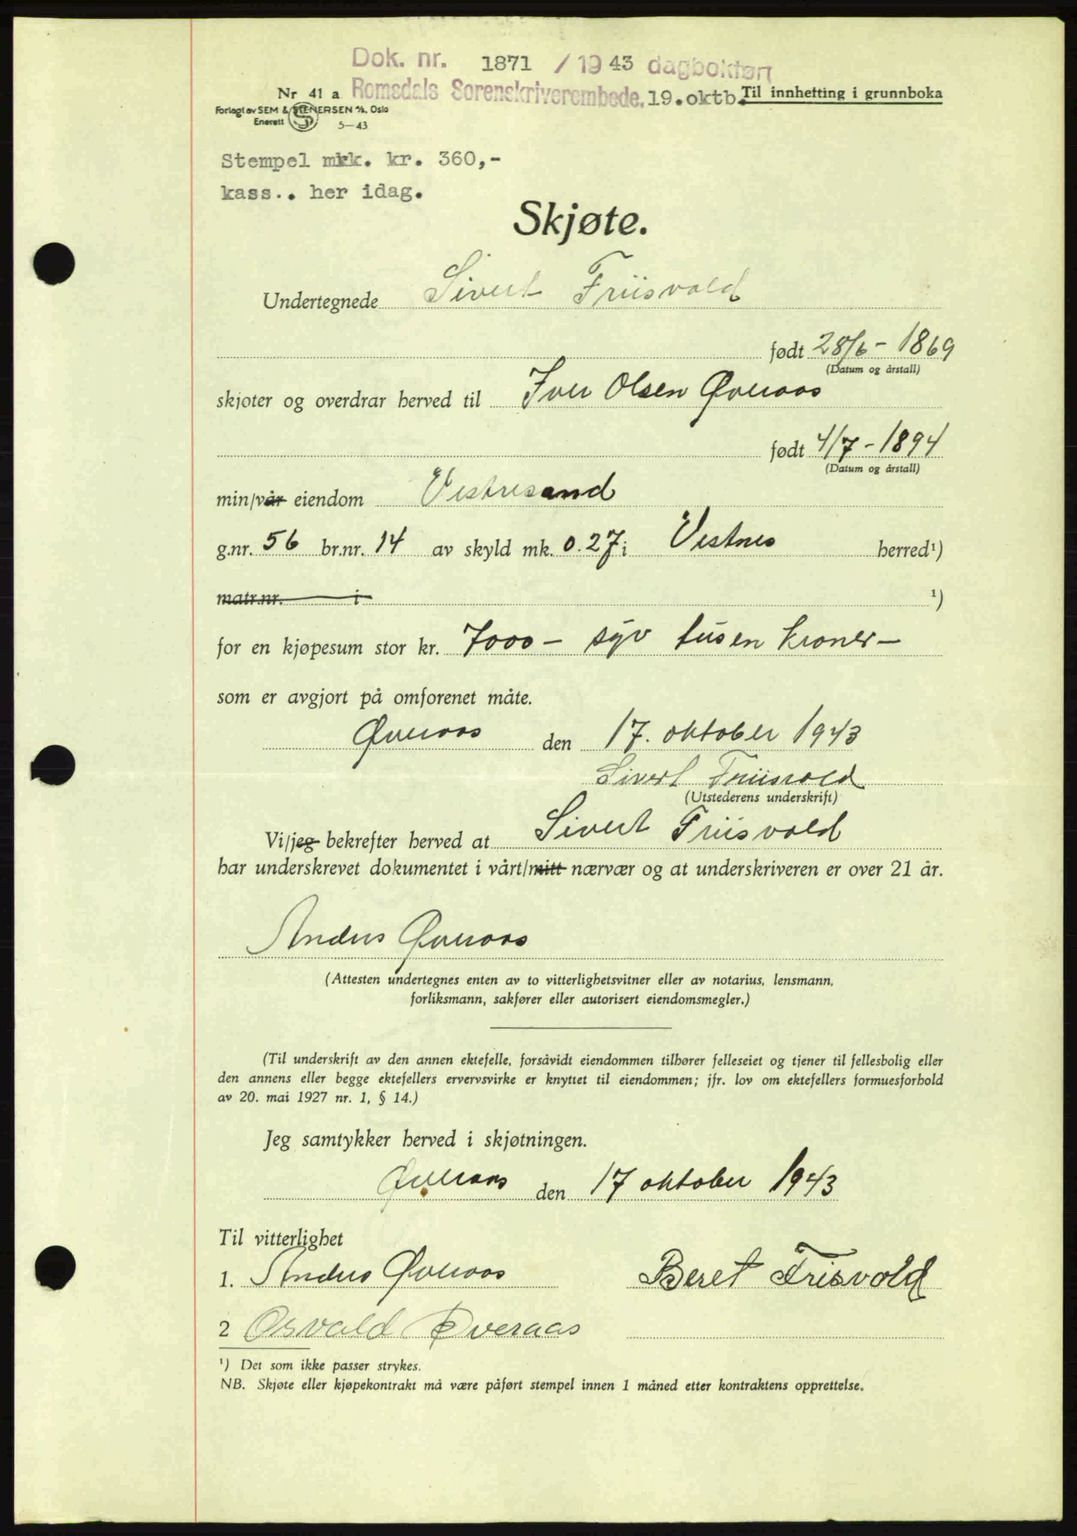 Dok. nr. 1871 / 1943 dagbokført
Nr 41 a Romsdals Sorenskriverembede. 19. oktb. Til innhefting i grunnboka
Forlagt av SEM & STENERSEN A/S, Oslo
Enerett 5-43
Stempel mkk. kr. 360,-
kass.. her idag.
Skjøte.
Undertegnede Sivert Friisvold
født 28/6 - 1869
(Datum og årstall)
skjøter og overdrar herved til Iver Olsen Øveraas
født 4/7 - 1894
(Datum og årstall)
min/vår eiendom Vestresand
g.nr. 56 br.nr. 14 av skyld mk. 0.27 i Vestnes herred¹)
matr.nr. i ¹)
for en kjøpesum stor kr. 7000 - syv tusen kroner -
som er avgjort på omforenet måte.
Øveraas den 17. oktober 1943
Sivert Friisvold
(Utstederens underskrift)
Vi/jeg bekrefter herved at Sivert Friisvold
har underskrevet dokumentet i vårt/mitt nærvær og at underskriveren er over 21 år.
Anders Øveraas
(Attesten undertegnes enten av to vitterlighetsvitner eller av notarius, lensmann,
forliksmann, sakfører eller autorisert eiendomsmegler.)
(Til underskrift av den annen ektefelle, forsåvidt eiendommen tilhører felleseiet og tjener til fellesbolig eller
den annens eller begge ektefellers ervervsvirke er knyttet til eiendommen; jfr. lov om ektefellers formuesforhold
av 20. mai 1927 nr. 1, § 14.)
Jeg samtykker herved i skjøtningen.
Øveraas den 17 oktober 1943
Til vitterlighet
1. Anders Øveraas Beret Frisvold
2 Osvald Øveraas
¹) Det som ikke passer strykes.
NB. Skjøte eller kjøpekontrakt må være påført stempel innen 1 måned etter kontraktens opprettelse.